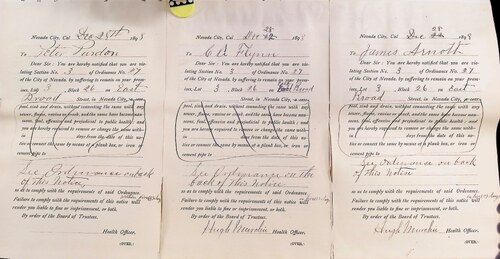 Nevada City, Cal Dec 28th 189
To Peter Purdon
Dear Sir: You are hereby notified that you are vio-
lating Section No. 3 of Ordinance No. 27
of the City of Nevada, by suffering to remain on your prem-
ises, Lot 3, Block 26 on East
Broad Street, in Nevada City, a
pool, sink and drain, without connecting the same with any
sewer, flume, ravine or canal, and the same have become nau-
seous, foul, offensive and prejudicial to public health; and
you are hereby required to remove or change the same with-
in days from the date of this no-
tice to conveyed by means of a plank box, or iron or
cement pipe to
See Ordinance on back
of this Notice
so as to comply with the requirements of said Ordinance
Failure to comply with the requirements of this notice will
render you liable to fine or imprisonment, or both.
By order of the Board of Trustees.
Health Officer.
(OVER)
Nevada City, Cal Dec 28 189
To C A Flynn
Dear Sir: You are hereby notified that you are vio-
lating Section No. 3 of Ordinance No. 27
of the City of Nevada, by suffering to remain on your prem-
ises, Lot 3, Block 26 on East Broad
Street, in Nevada City, a
pool, sink and drain, without connecting the same with any
sewer, flume, ravine or canal, and the same have become nau-
seous, foul, offensive and prejudicial to public health; and
you are hereby required to remove or change the same with-
in days from the date of this no-
tice to conveyed by means of a plank box, or iron or
cement pipe to
See Ordinance on the
back of this Notice
so as to comply with the requirements of said Ordinance
Failure to comply with the requirements of this notice will
render you liable to fine or imprisonment, or both.
By order of the Board of Trustees.
Hugh Murchie
Health Officer.
(OVER)
Nevada City, Cal Dec 28 189
To James Arnott
Dear Sir: You are hereby notified that you are vio-
lating Section No. 3 of Ordinance No. 27
of the City of Nevada, by suffering to remain on your prem-
ises, Lot 3, Block 26 on East
Broad Street, in Nevada City, a
pool, sink and drain, without connecting the same with any
sewer, flume, ravine or canal, and the same have become nau-
seous, foul, offensive and prejudicial to public health; and
you are hereby required to remove or change the same with-
in days from the date of this no-
tice to conveyed by means of a plank box, or iron or
cement pipe to
See Ordinance on back
of this Notice
so as to comply with the requirements of said Ordinance
Failure to comply with the requirements of this notice will
render you liable to fine or imprisonment, or both.
By order of the Board of Trustees.
Hugh Murchie
Health Officer.
(OVER)